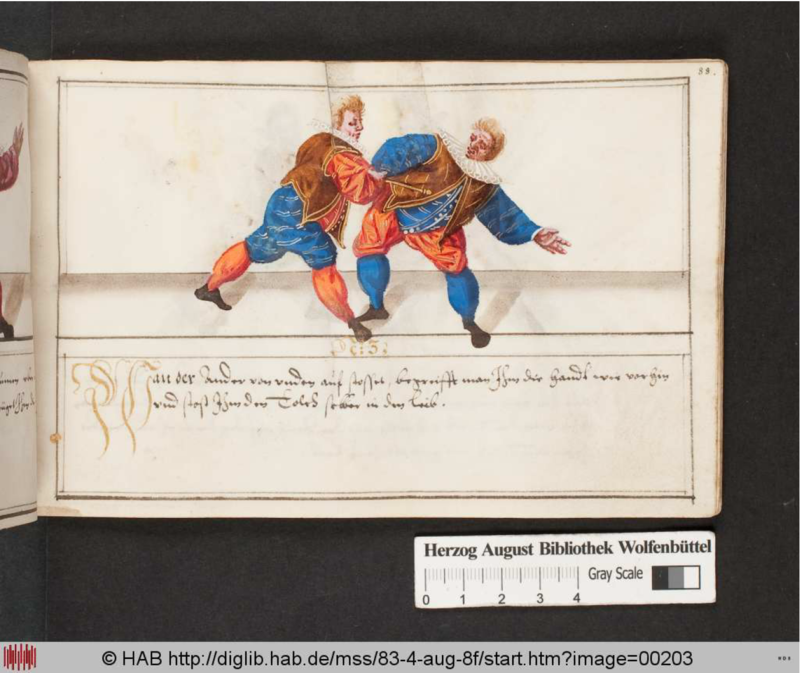 88.
N: 5:
Wan der Ander von unden auf stosset, begreifft man Ihm die handt wie vorhin
und stost Ihm den Tolch selber in den Leib.
Herzog August Bibliothek Wolfenbüttel
Gray Scale
0 1 2 3 4
© HAB http://diglib.hab.de/mss/83-4-aug-8f/start.htm?image=00203